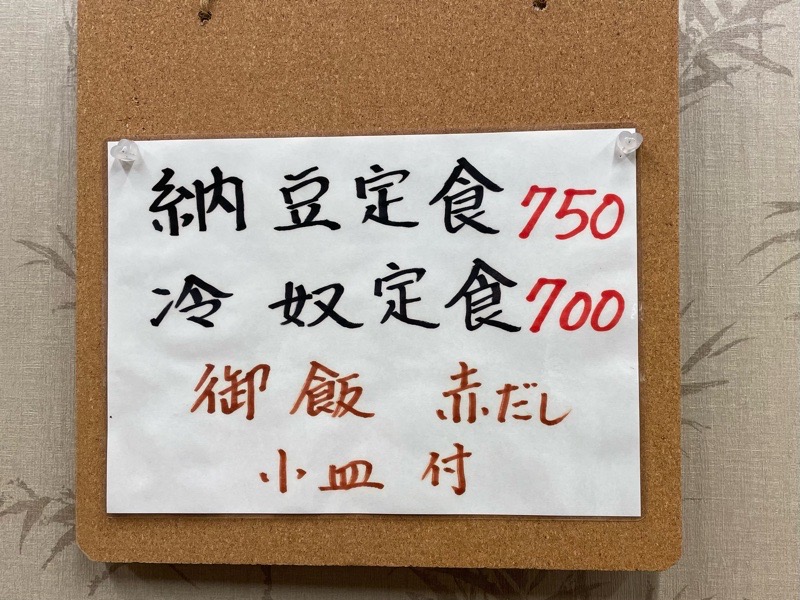 納豆定食750
冷奴定食700
御飯 赤だし
小皿 付